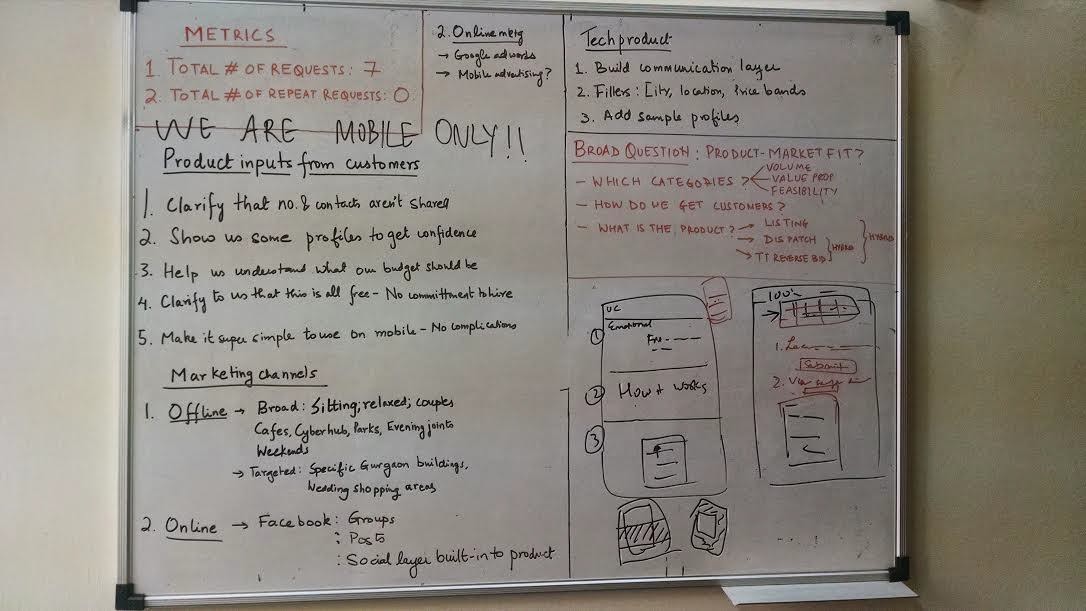 METRICS
1. TOTAL # OF REQUESTS: 7
2. TOTAL # OF REPEAT REQUESTS: 0
WE ARE MOBILE ONLY!!
Product inputs from customers
1. Clarify that no. & contacts aren't shared
2. Show us some profiles to get confidence
3. Help us understand what our budget should be
4. Clarify to us that this is all free - No committment to hire
5. Make it super simple to use on mobile - No complications
Marketing channels
1. Offline → Broad: Sitting, relaxed, couples
Cafes, Cyberhub, Parks, Evening joints
Weekends
→ Targeted: Specific Gurgaon buildings,
Wedding shopping areas
2. Online → Facebook: Groups
: Posts
: Social layer built-in to product
2. Online
→ Google adwords
→ Mobile advertising?
Tech product
1. Build communication layer
2. Filters: City, location, Price bands
3. Add sample profiles
BROAD QUESTION: PRODUCT-MARKET FIT?
- WHICH CATEGORIES?
VOLUME
VALUE PROP
FEASIBILITY
- HOW DO WE GET CUSTOMERS?
- WHAT IS THE PRODUCT?
→ LISTING
→ DISPATCH
→ TT REVERSE BID
HYBRID
HYBRID
UC
1 Emotional
2 How it works
3
100%
1.
Submit
2.